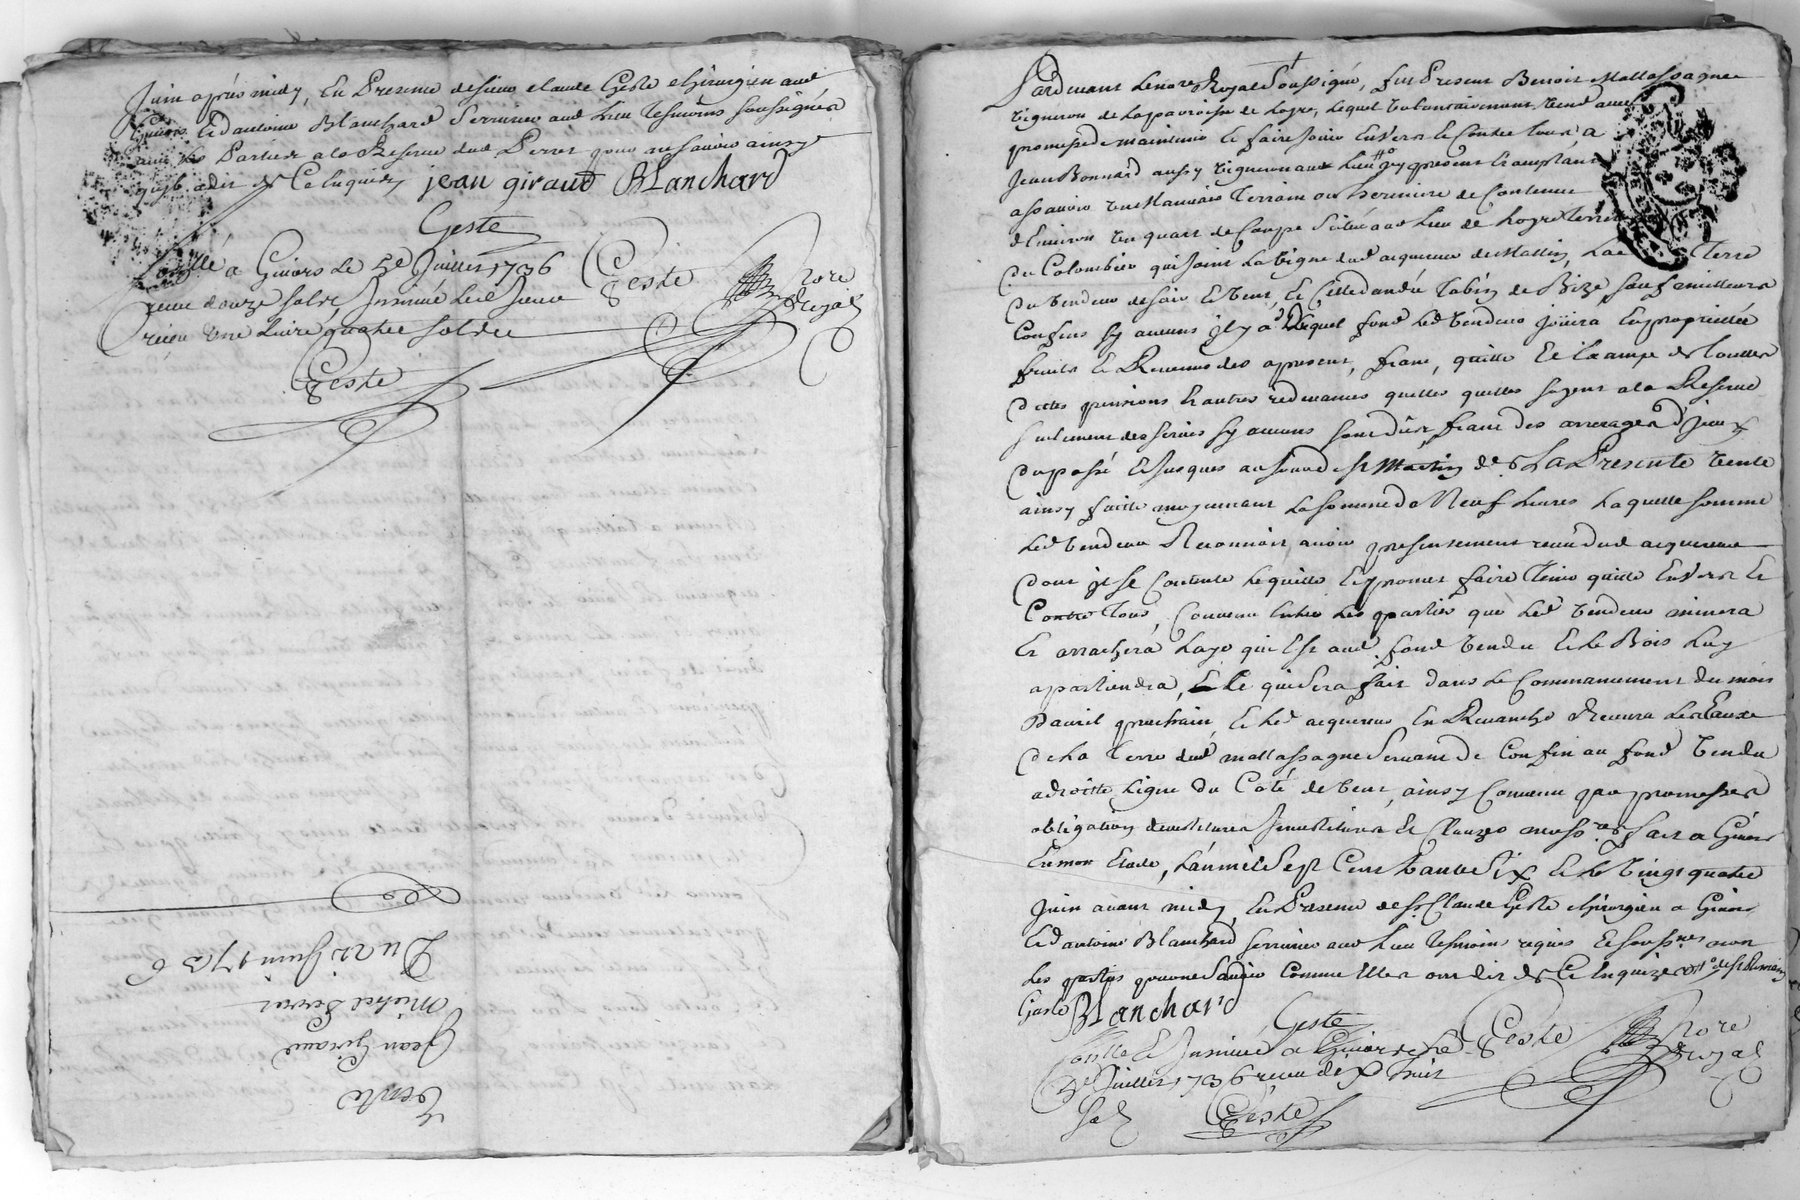 Juin après midy, En Presence de sieur claude Geste chirurgien aud
Givors Et antoine Blanchard Serrurier aud Lieu Tesmoins soussignés
avec les Parties a la Reserve dud Perret pour ne savoir ainsy
quil a dit de Ce Enquis jean giraud Blanchard
Geste
Conllé a Givors Le 5e Juillet 1736 Geste
receu douze sols Insinué Led Jour
receu une Livre quatre sols
Geste
nore
Royal
Du 21 Juin 1736
Michel Perret
Jean Giraud
Vente
Pardevant Le nore Royal Soussigné, fut Present Benoit Mallassagne
vigneron de la parroisse de Logre, Lequel volontairement vend avec
promesse de maintenir Et faire Jouir Envers Et Contre tous a
Jean Bonnard aussy vigneron aud Lieu present Et acceptant
assavoir un Mauvais Terrain ou herminre de Contenue
d'Environ un quart de Coupe Scitué aud Lieu de Logre Terre
Du Colombier qui Joint La vigne dud acquereur de Mattin, La Terre
Du vendeur de soir Et vent, Et Celle d'andré Tabin de Bize sauf meilleurs
Confins sy aucuns il y a Lequel fond Led vendeur Joüira En proprietté
fruits Et Revenus des apresent, franc, quitte Et Exampt de touttes
dettes pensions Et autres redevances quelles quelles soyent a la Reserve
seulement des servis sy aucuns sont dûs franc des arrerages d'Iceux
Du passé Et Jusques au Jour de St Martin de La Presente vente
ainsy faitte moyennant La somme de Neuf Livres Laquelle somme
Led vendeur Reconnoit avoir presentement receü dud acquereur
dont il se Contente Le quitte Et promet faire Tenir quitte Envers Et
Contre Tous, Convenu Entre Les parties que Led vendeur minera
Et arrachera Laye qui Est aud fond vendu Et Le Bois Luy
apartiendra, Ce qui sera fait dans Le Commancement du mois
D'avril prochain, Et Led acquereur En Revanche Recevra Les Eaux
De La Terre dud mallassagne Servant de Confin au fond vendu
adroitte Ligne du Coté de vent, ainsy Convenu par promesses
obligation devestitures Investitures Et Clauzes fait a Givors
En mon Etude, L'an mil Sept Cent trante Six Et Le vingt quatre
Juin avant midy, En Presence de Sr Claude Geste chirurgien a Givors
Et antoine Blanchard serrurier aud Lieu Tesmoins requis Et soussnés non
Les parties pour ne Savoir comme Elles ont dit de Ce Enquizes
Geste Blanchard Geste
Conllé Et Insinué a Givors Le Geste
5e Juillet 1736 receu dix huit
sols Geste
nore
Royal